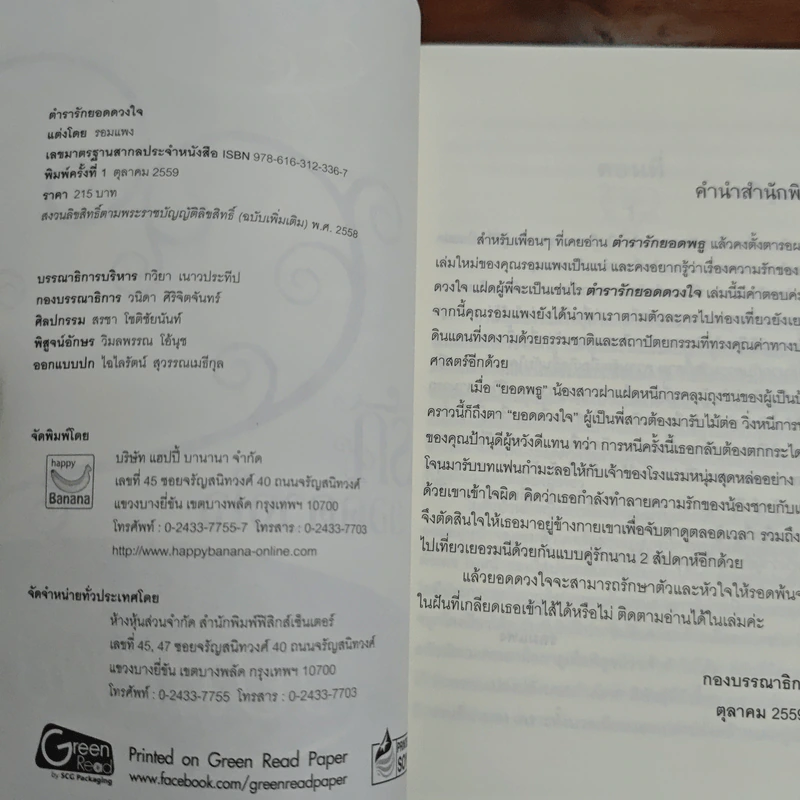 ตำรารักยอดดวงใจ
แต่งโดย รอมแพง
เลขมาตรฐานสากลประจำหนังสือ ISBN 978-616-312-336-7
พิมพ์ครั้งที่ 1 ตุลาคม 2559
ราคา 215 บาท
สงวนลิขสิทธิ์ตามพระราชบัญญัติลิขสิทธิ์ (ฉบับเพิ่มเติม) พ.ศ. 2558
บรรณาธิการบริหาร กวิยา เนาวประทีป
กองบรรณาธิการ วนิดา ศิริจิตจันทร์
ศิลปกรรม สรชา โชติชัยนันท์
พิสูจน์อักษร วิมลพรรณ โอ้นุช
ออกแบบปก ไฉไลรัตน์ สุวรรณเมธีกุล
จัดพิมพ์โดย
happy
Banana
บริษัท แฮปปี้ บานานา จำกัด
เลขที่ 45 ซอยจรัญสนิทวงศ์ 40 ถนนจรัญสนิทวงศ์
แขวงบางยี่ขัน เขตบางพลัด กรุงเทพฯ 10700
โทรศัพท์ : 0-2433-7755-7 โทรสาร : 0-2433-7703
http://www.happybanana-online.com
จัดจำหน่ายทั่วประเทศโดย
ห้างหุ้นส่วนจำกัด สำนักพิมพ์ฟิสิกส์เซ็นเตอร์
เลขที่ 45, 47 ซอยจรัญสนิทวงศ์ 40 ถนนจรัญสนิทวงศ์
แขวงบางยี่ขัน เขตบางพลัด กรุงเทพฯ 10700
โทรศัพท์ : 0-2433-7755 โทรสาร : 0-2433-7703
Green
Read
by SCC Packaging
Printed on Green Read Paper
www.facebook.com/greenreadpaper
คำนำสำนักพิ
สำหรับเพื่อนๆ ที่เคยอ่าน ตำรารักยอดพธู แล้วคงตั้งตารอผ
เล่มใหม่ของคุณรอมแพงเป็นแน่ และคงอยากรู้ว่าเรื่องความรักของ
ดวงใจ แฝดผู้พี่จะเป็นเช่นไร ตำรารักยอดดวงใจ เล่มนี้มีคำตอบค่
จากนี้คุณรอมแพงยังได้นำพาเราตามตัวละครไปท่องเที่ยวยังเย
ดินแดนที่งดงามด้วยธรรมชาติและสถาปัตยกรรมที่ทรงคุณค่าทางป
ศาสตร์อีกด้วย
เมื่อ “ยอดพธู” น้องสาวฝาแฝดหนีการคลุมถุงชนของผู้เป็นป้
คราวนี้ก็ถึงตา “ยอดดวงใจ” ผู้เป็นพี่สาวต้องมารับไม้ต่อ วิ่งหนีการ
ของคุณป้านุดีผู้หวังดีแทน ทว่า การหนีครั้งนี้เธอกลับต้องตกกระได
โจนมารับบทแฟนกำมะลอให้กับเจ้าของโรงแรมหนุ่มสุดหล่ออย่าง
ด้วยเขาเข้าใจผิด คิดว่าเธอกำลังทำลายความรักของน้องชายกับแ
จึงตัดสินใจให้เธอมาอยู่ข้างกายเขาเพื่อจับตาดูตลอดเวลา รวมถึง
ไปเที่ยวเยอรมนีด้วยกันแบบคู่รักนาน 2 สัปดาห์อีกด้วย
แล้วยอดดวงใจจะสามารถรักษาตัวและหัวใจให้รอดพ้นจ
ในฝันที่เกลียดเธอเข้าไส้ได้หรือไม่ ติดตามอ่านได้ในเล่มค่ะ
กองบรรณาธิก
ตุลาคม 2559